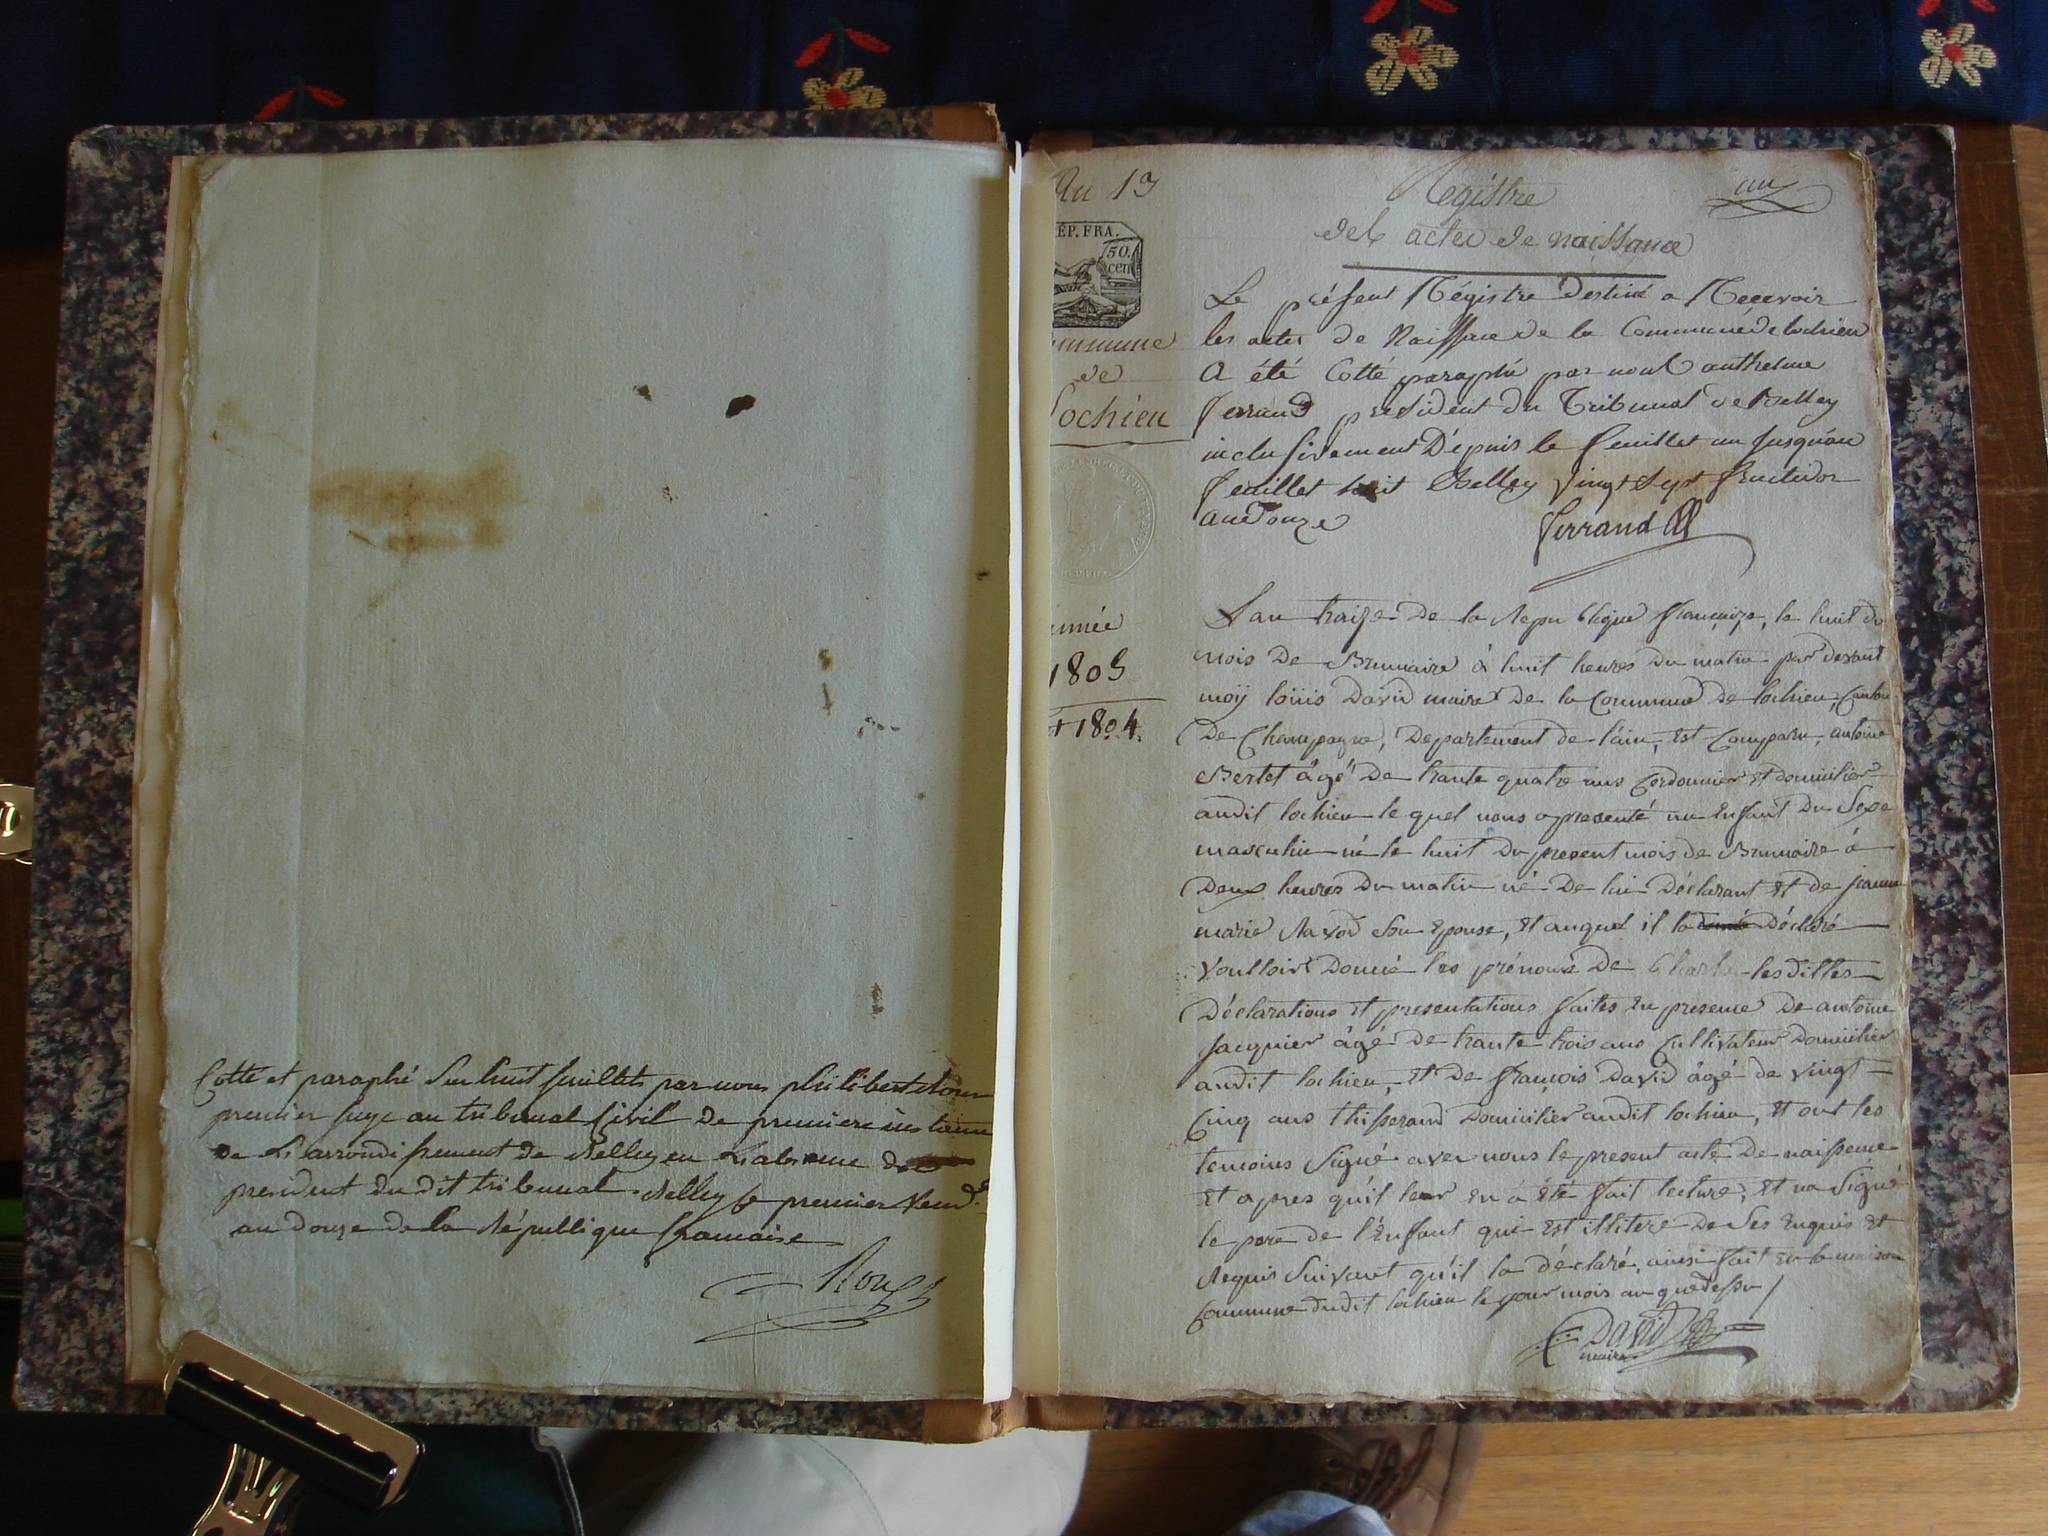 Cotté et paraphé Sur huit feuillets par nous philibert
premier juge au tribunal Civil de premiere instance
de L'arrondissement de Belley en L'absence de
president du dit tribunal. Belley le premier Vend.re
an douze de la République francaise
Roux
An 13
RÉP. FRA.
50.
cen
commune
de
Lochieu
année
1805
et 1804.
un
Registre
des actes de naissance
Le présent Régistre destiné a Recevoir
les actes de Naissance de la Commune de lochieu
A été Cotté paraphé par nous anthelme
ferrand president du Tribunal de Belley
inclusivement Dépuis le feuillet un Jusqu'au
feuillet huit Belley Vingt Sept fructidor
an douze
ferrand
L'an traize De la Republique française, le huit du
mois De Brumaire à huit heures Du matin par devant
moÿ loüis David maire De la Commune De lochieu, Canton
De Champagne, Departement de l'ain, Est Comparu, antoine
Bertet âgé De trante quatre ans Cordonnier Et domicilier
audit lochieu le quel nous a presenté un Enfant Du Sexe
masculin né le huit Du present mois de Brumaire à
Deux heures Du matin né De lui Déclarant Et de jeanne
marie Ravod Son Epouse, Et auquel il la Déclaré
Voulloir Donné les prénoms De Charle les dittes
Déclarations Et presentations faites En presence De antoine
Jacquier âgé De trante trois ans Cultivateur Domicilier
audit lochieu, Et De françois David âgé de vingt
Cinq ans thisserand Domicilier audit lochieu, Et ont les
temoins Signé avec nous le present acte De naissence
Et apres qu'il leur En a Eté fait lecture, Et na Signé
le pere de l'Enfant qui Est illitere De Ses Enquis Et
Requis Suivant qu'il la déclaré, ainsi fait En la maison
Commune dudit lochieu le jour mois an que dessu
David
maire